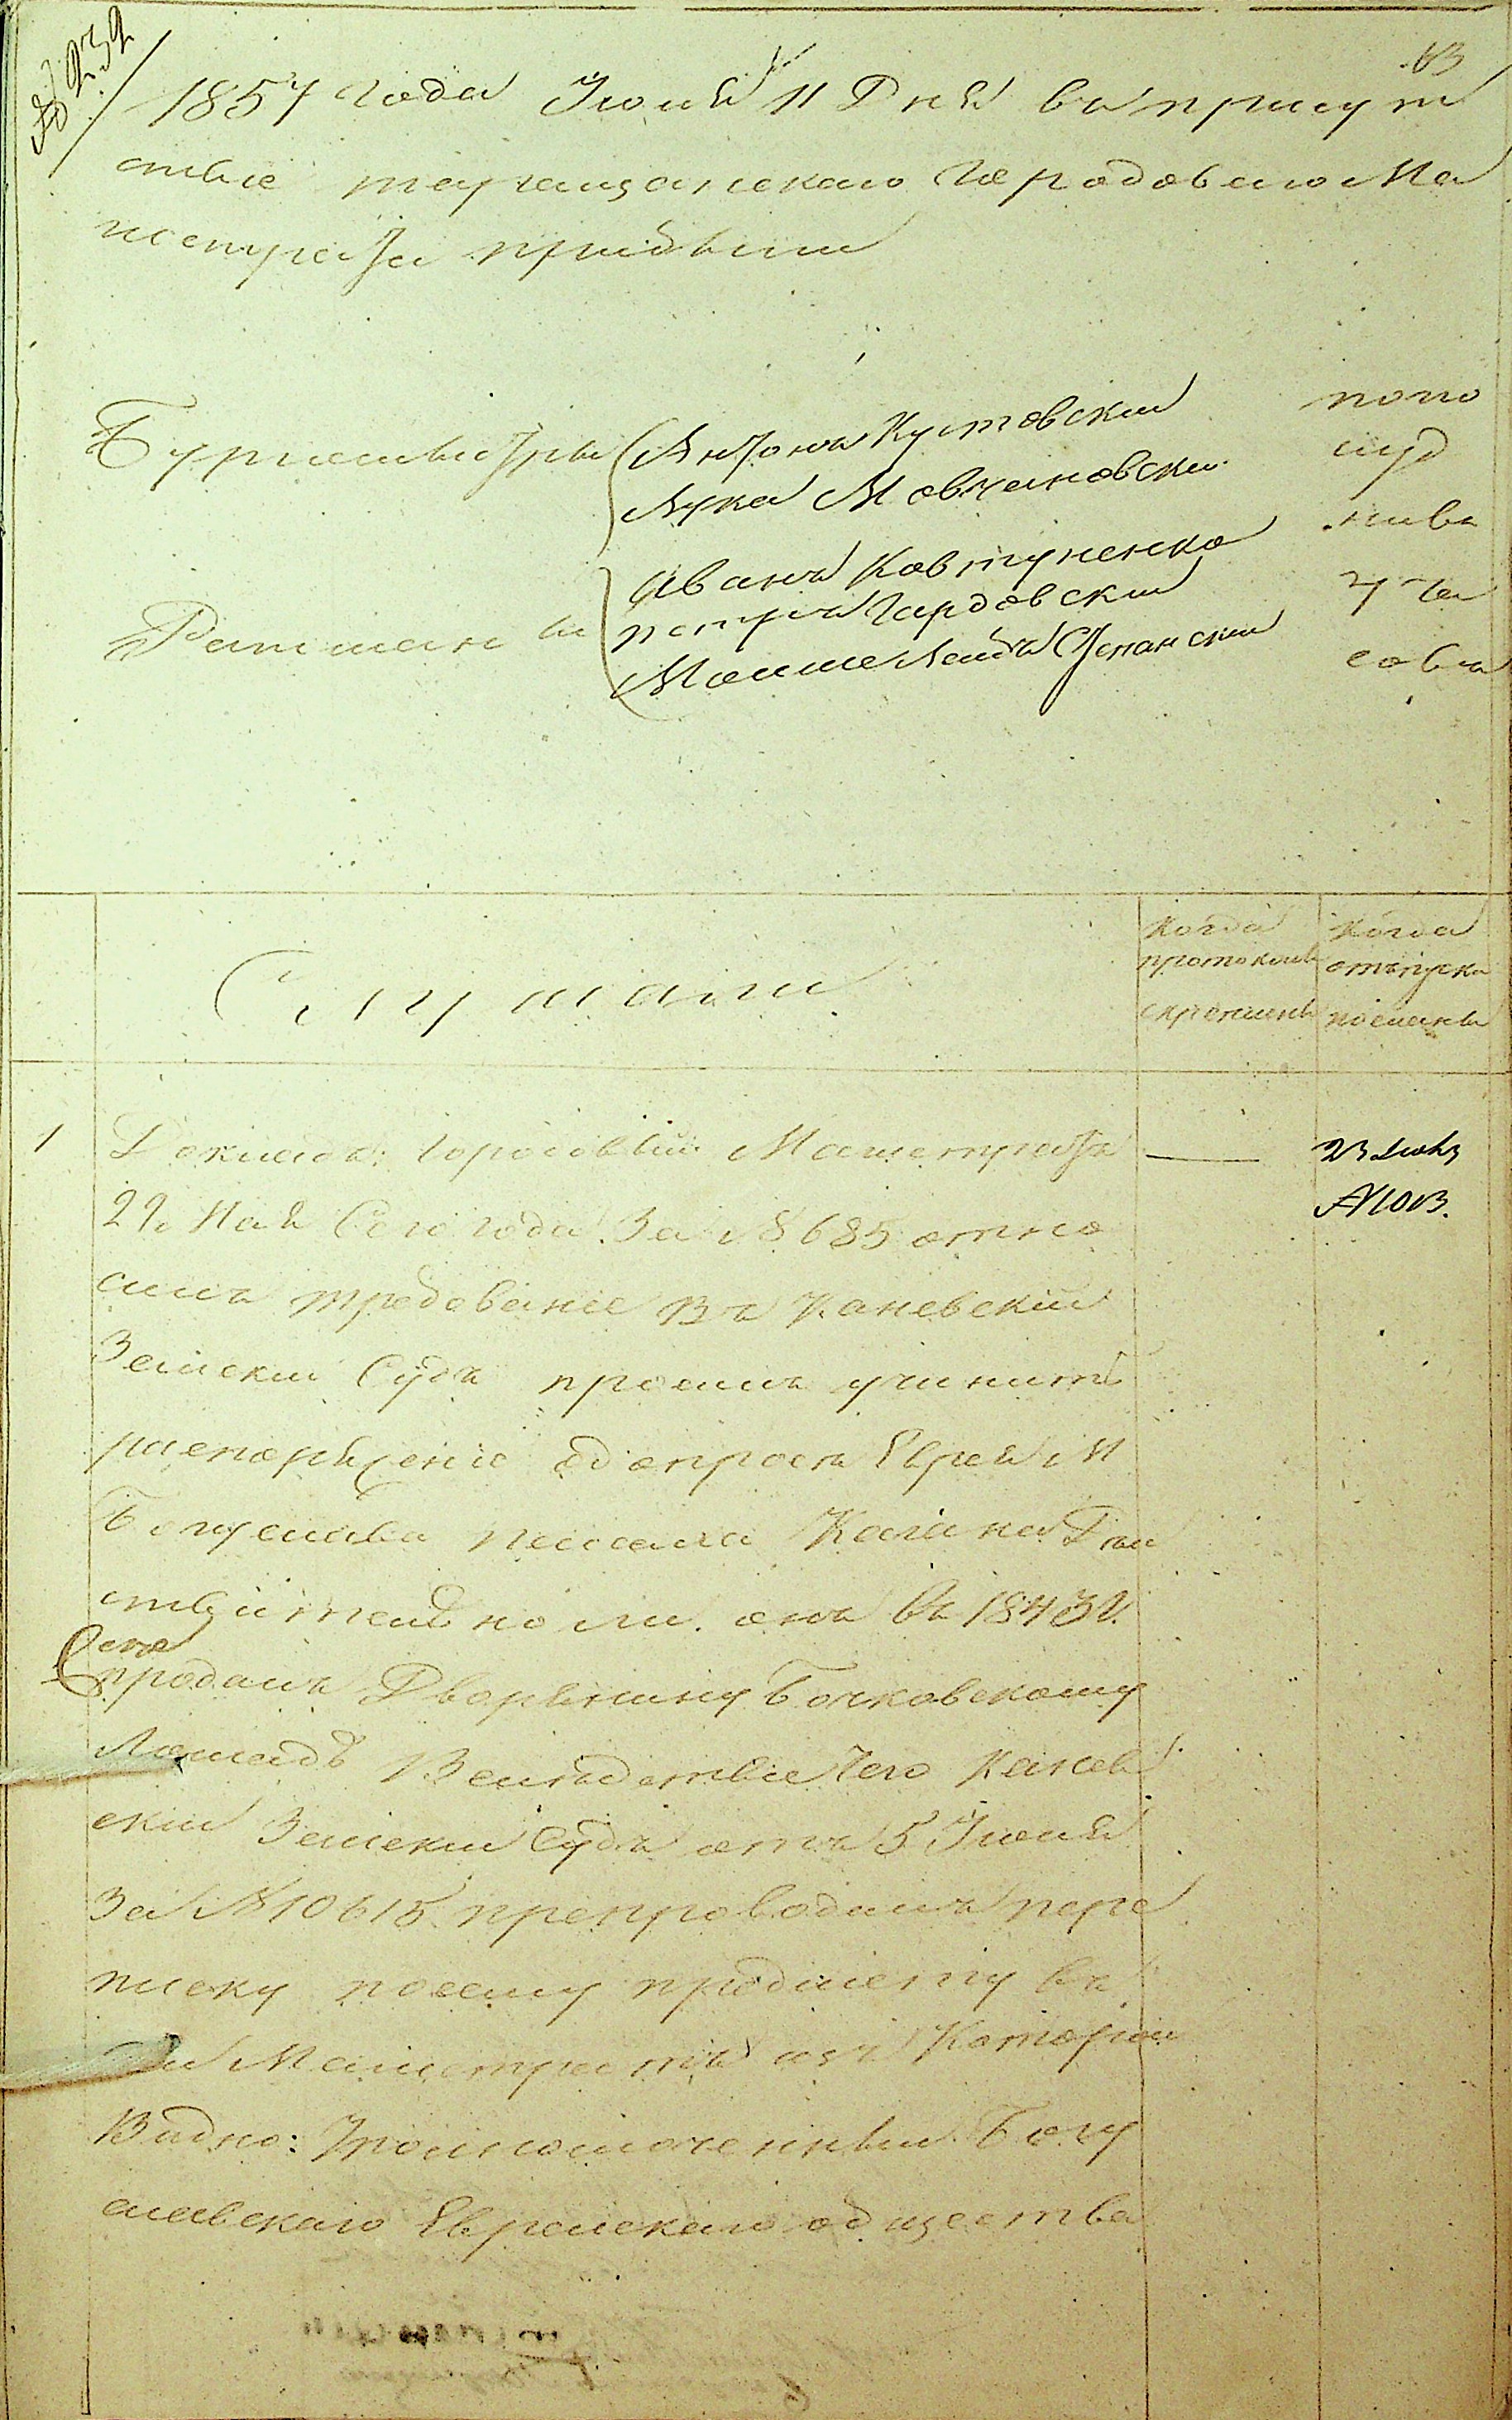 № 232
63
1857 года Июня 11 Дня въ присут
ствіе таращанскаго Городоваго Ма
гистрата прибыли
Бургомистры Антонъ Кустовскии
Лука Мовчановски
Ратманы Иванъ Ковтуненко
петръ Гардовскии
Мошко Лейбъ Степанскии
попо
луд
нивъ
7 ча
совъ
Слушали
Когда протоколъ скрепленъ
Когда отпуски посланы
1 Докладъ: Городовый Магистратъ
22 Мая Сего года За № 685 отно
силъ требованіе Въ Каневскии
Земскии Судъ просилъ учинить
распоряженіе об опросѣ Еврея М
Богуслава Кагана Дѣй
ствительно ли онъ въ 1843 г.
продалъ Дворянину Бочковскому
Лошадь Вслѣдствіе чего Канев
скіи Земскии Судъ отъ 5 Июня
За № 10615 препроводилъ пере
писку посему предмету въ
Магистратъ изъ Которои
Видно: Уполномоченныи Богу
славскаго Еврейскаго общества
23 Июня
№ 1013.